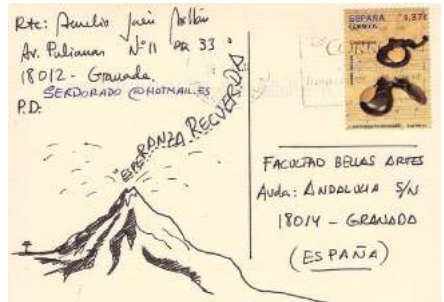 Rte: Aurelio Jaén
Av. Pulianas Nº11 33
18012 - Granada.
SERDORADO@HOTMAIL.ES
P.D.
"ESPERANZA RECUERDA
ESPAÑA 0,37€
CORREOS
FACULTAD BELLAS ARTES
Avda: ANDALUCIA S/N
18014 - GRANADA
(ESPAÑA)